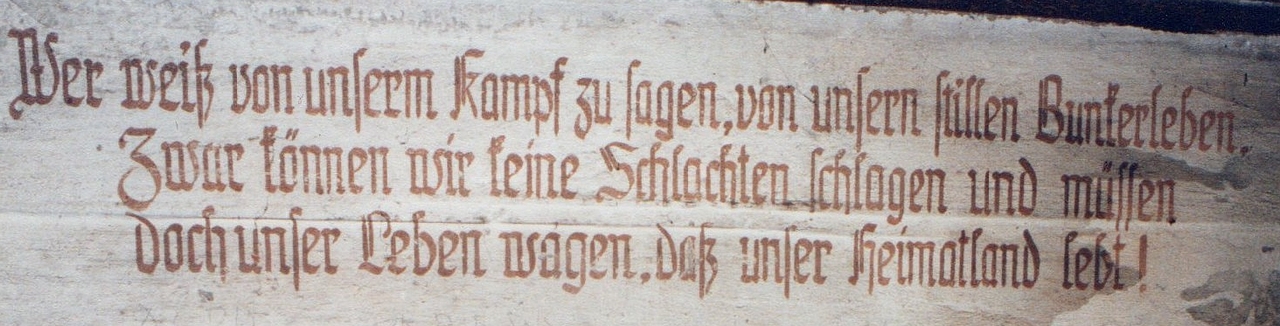 Wer weiß von unserm Kampf zu sagen, von unsern stillen Bunkerleben.
Zwar können wir keine Schlachten schlagen und müssen
doch unser Leben wagen, daß unser Heimatland lebt!